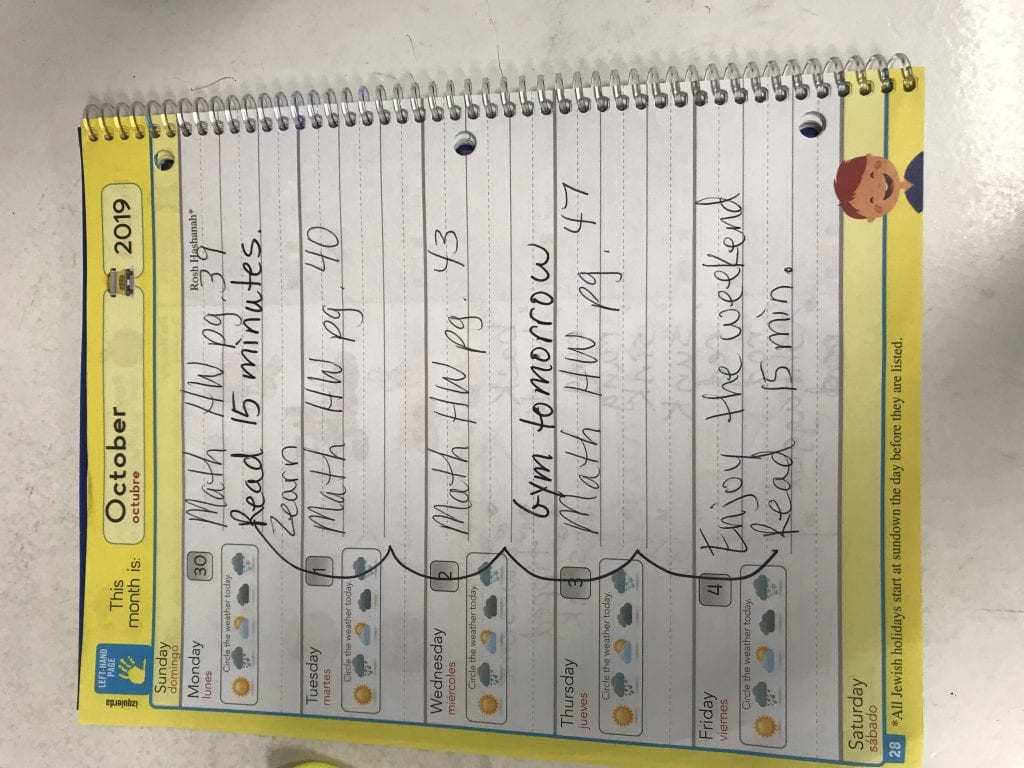 LEFT-HAND PAGE
izquierda
This month is:
October
octubre
2019
Sunday
domingo
Monday
lunes
30
Rosh Hashanah*
Circle the weather today.
Math HW pg. 39
Read 15 minutes.
Zearn
Tuesday
martes
1
Circle the weather today.
Math HW pg. 40
Wednesday
miércoles
2
Circle the weather today.
Math HW pg. 43
Gym tomorrow
Thursday
jueves
3
Circle the weather today.
Math HW pg. 47
Friday
viernes
4
Circle the weather today.
Enjoy the weekend
Read 15 min.
Saturday
sábado
28
*All Jewish holidays start at sundown the day before they are listed.